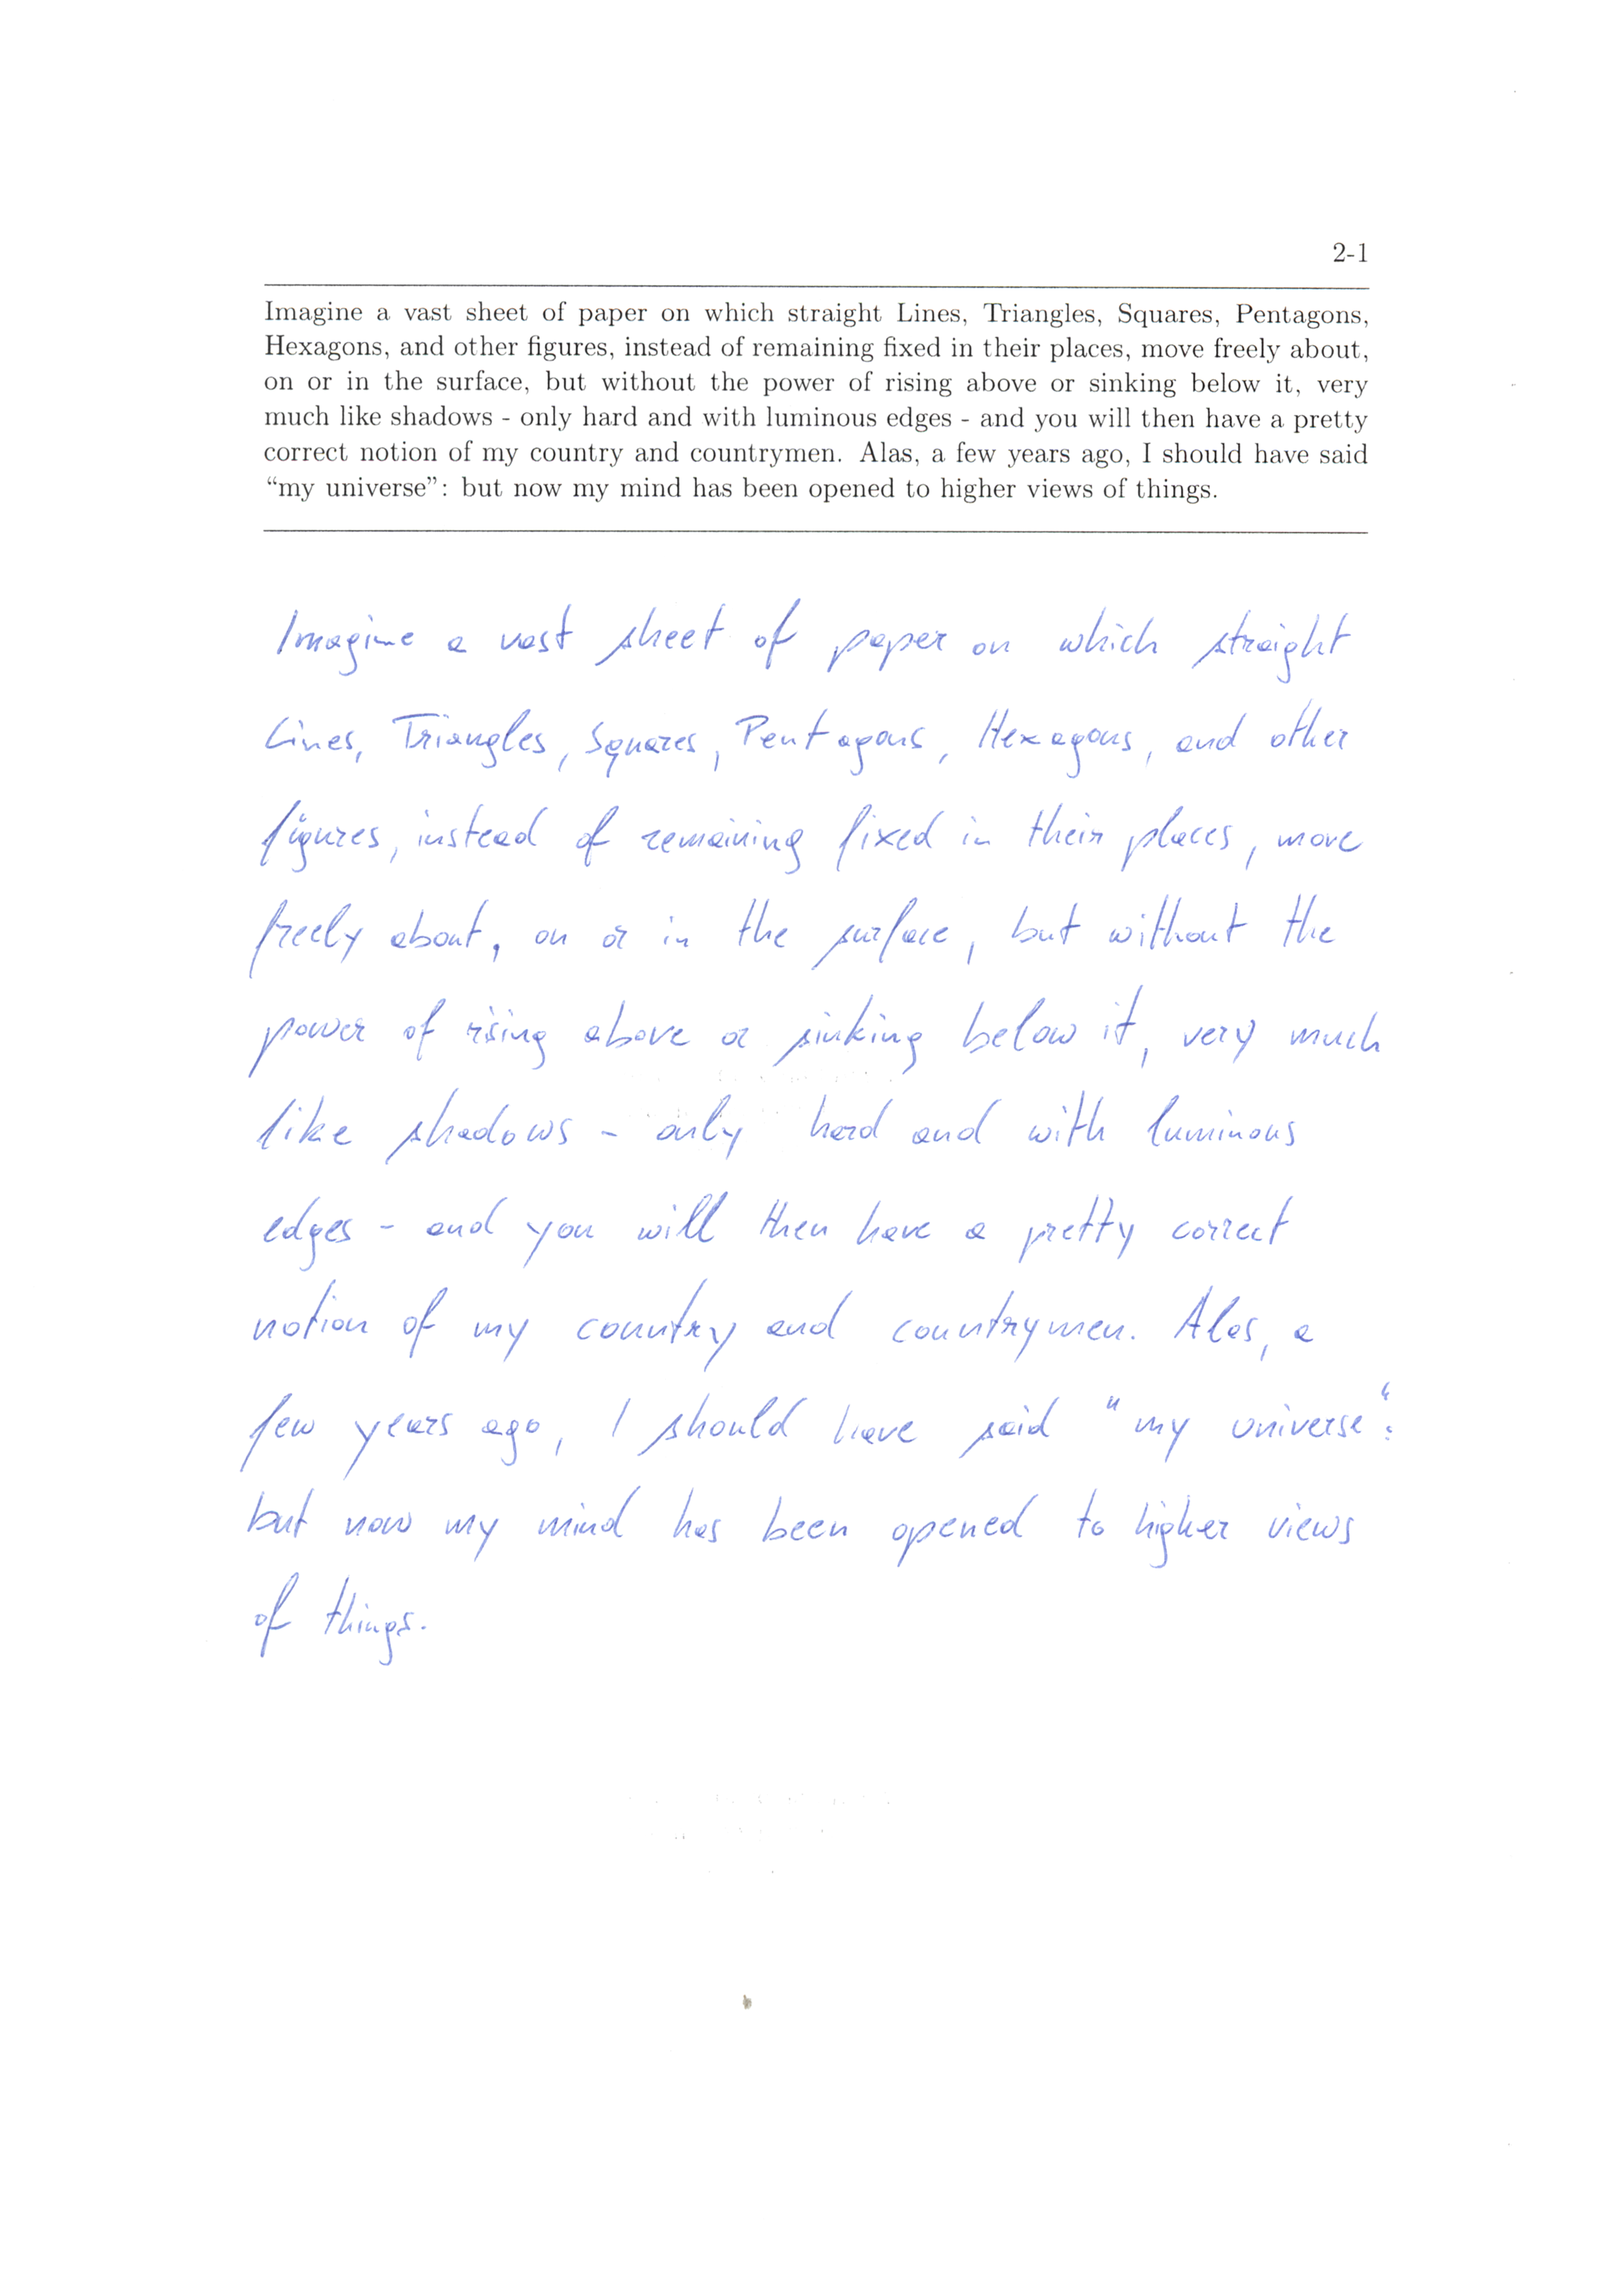 2-1
Imagine a vast sheet of paper on which straight Lines, Triangles, Squares, Pentagons,
Hexagons, and other figures, instead of remaining fixed in their places, move freely about,
on or in the surface, but without the power of rising above or sinking below it, very
much like shadows - only hard and with luminous edges - and you will then have a pretty
correct notion of my country and countrymen. Alas, a few years ago, I should have said
“my universe”: but now my mind has been opened to higher views of things.
Imagine a vast sheet of paper on which straight
Lines, Triangles, Squares, Pentagons, Hexagons, and other
figures, instead of remaining fixed in their places, move
freely about, on or in the surface, but without the
power of rising above or sinking below it, very much
like shadows - only hard and with luminous
edges - and you will then have a pretty correct
notion of my country and countrymen. Alas, a
few years ago, I should have said "my universe":
but now my mind has been opened to higher views
of things.